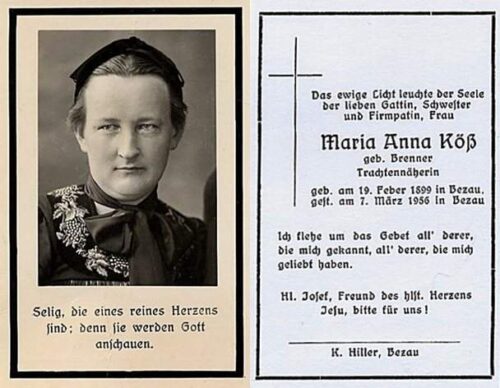 Selig, die eines reines Herzens
sind; denn sie werden Gott
anschauen.
Das ewige Licht leuchte der Seele
der lieben Gattin, Schwester
und Firmpatin, Frau
Maria Anna Köß
geb. Brenner
Trachtennäherin
geb. am 19. Feber 1899 in Bezau,
gest. am 7. März 1956 in Bezau
Ich flehe um das Gebet all' derer,
die mich gekannt, all' derer, die mich
geliebt haben.
Hl. Josef, Freund des hlst. Herzens
Jesu, bitte für uns!
K. Hiller, Bezau